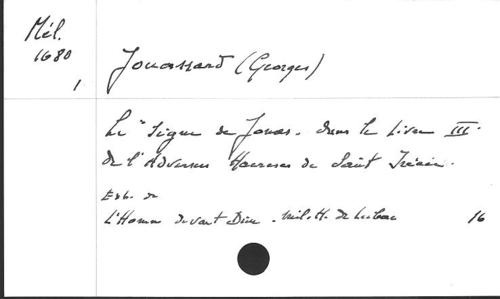 Mél.
1680
1
Jouassard (Georges)
Le "Signe de Jonas" dans le Livre III
de l'Adversus Haereses de Saint Irénée.
Ext. de
L'Homme devant Dieu. Mél. H. de Lubac 16